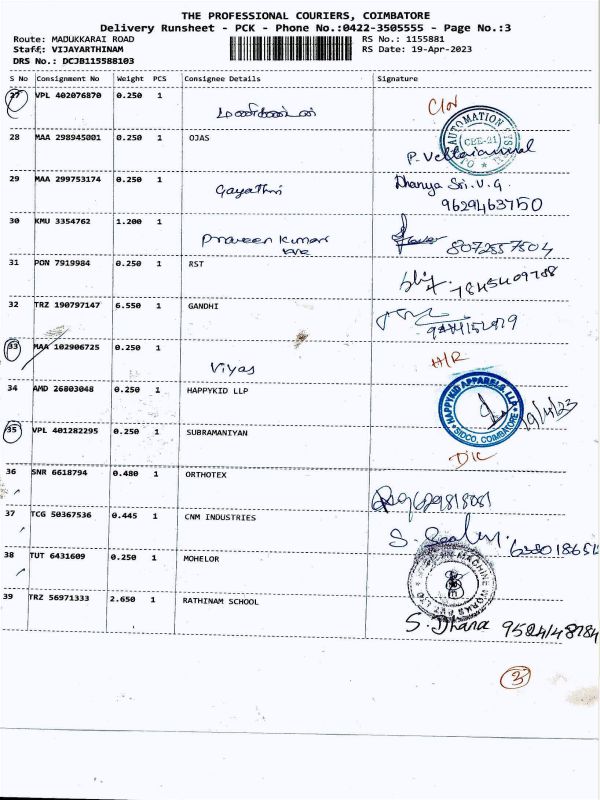 THE PROFESSIONAL COURIERS, COIMBATORE
Delivery Runsheet - PCK - Phone No.:0422-3505555 - Page No.:3
Route: MADUKKARAI ROAD RS No.: 1155881
Staff: VIJAYARTHINAM RS Date: 19-Apr-2023
DRS No.: DCJB115588103
S No Consignment No Weight PCS Consignee Details Signature
37 VPL 402076870 0.250 1
28 MAA 298945001 0.250 1 OJAS
AUTOMATION
CBE-21
29 MAA 299753174 0.250 1 Gayathri Dhanya Sri.V.G.
9629463750
30 KMU 3354762 1.200 1 Praveen Kumar 8072557504
31 PON 7919984 0.250 1 RST
32 TRZ 190797147 6.550 1 GANDHI
33 MAA 102906725 0.250 1 Viyas H/R
34 AMD 26803048 0.250 1 HAPPYKID LLP
HAPPYKID APPARELS LLP
SIDCO, COIMBATORE
19/4/23
35 VPL 401282295 0.250 1 SUBRAMANIYAN D/C
36 SNR 6618794 0.480 1 ORTHOTEX
37 TCG 50367536 0.445 1 CNM INDUSTRIES
38 TUT 6431609 0.250 1 MOHELOR
39 TRZ 56971333 2.650 1 RATHINAM SCHOOL
S. Dhana
3